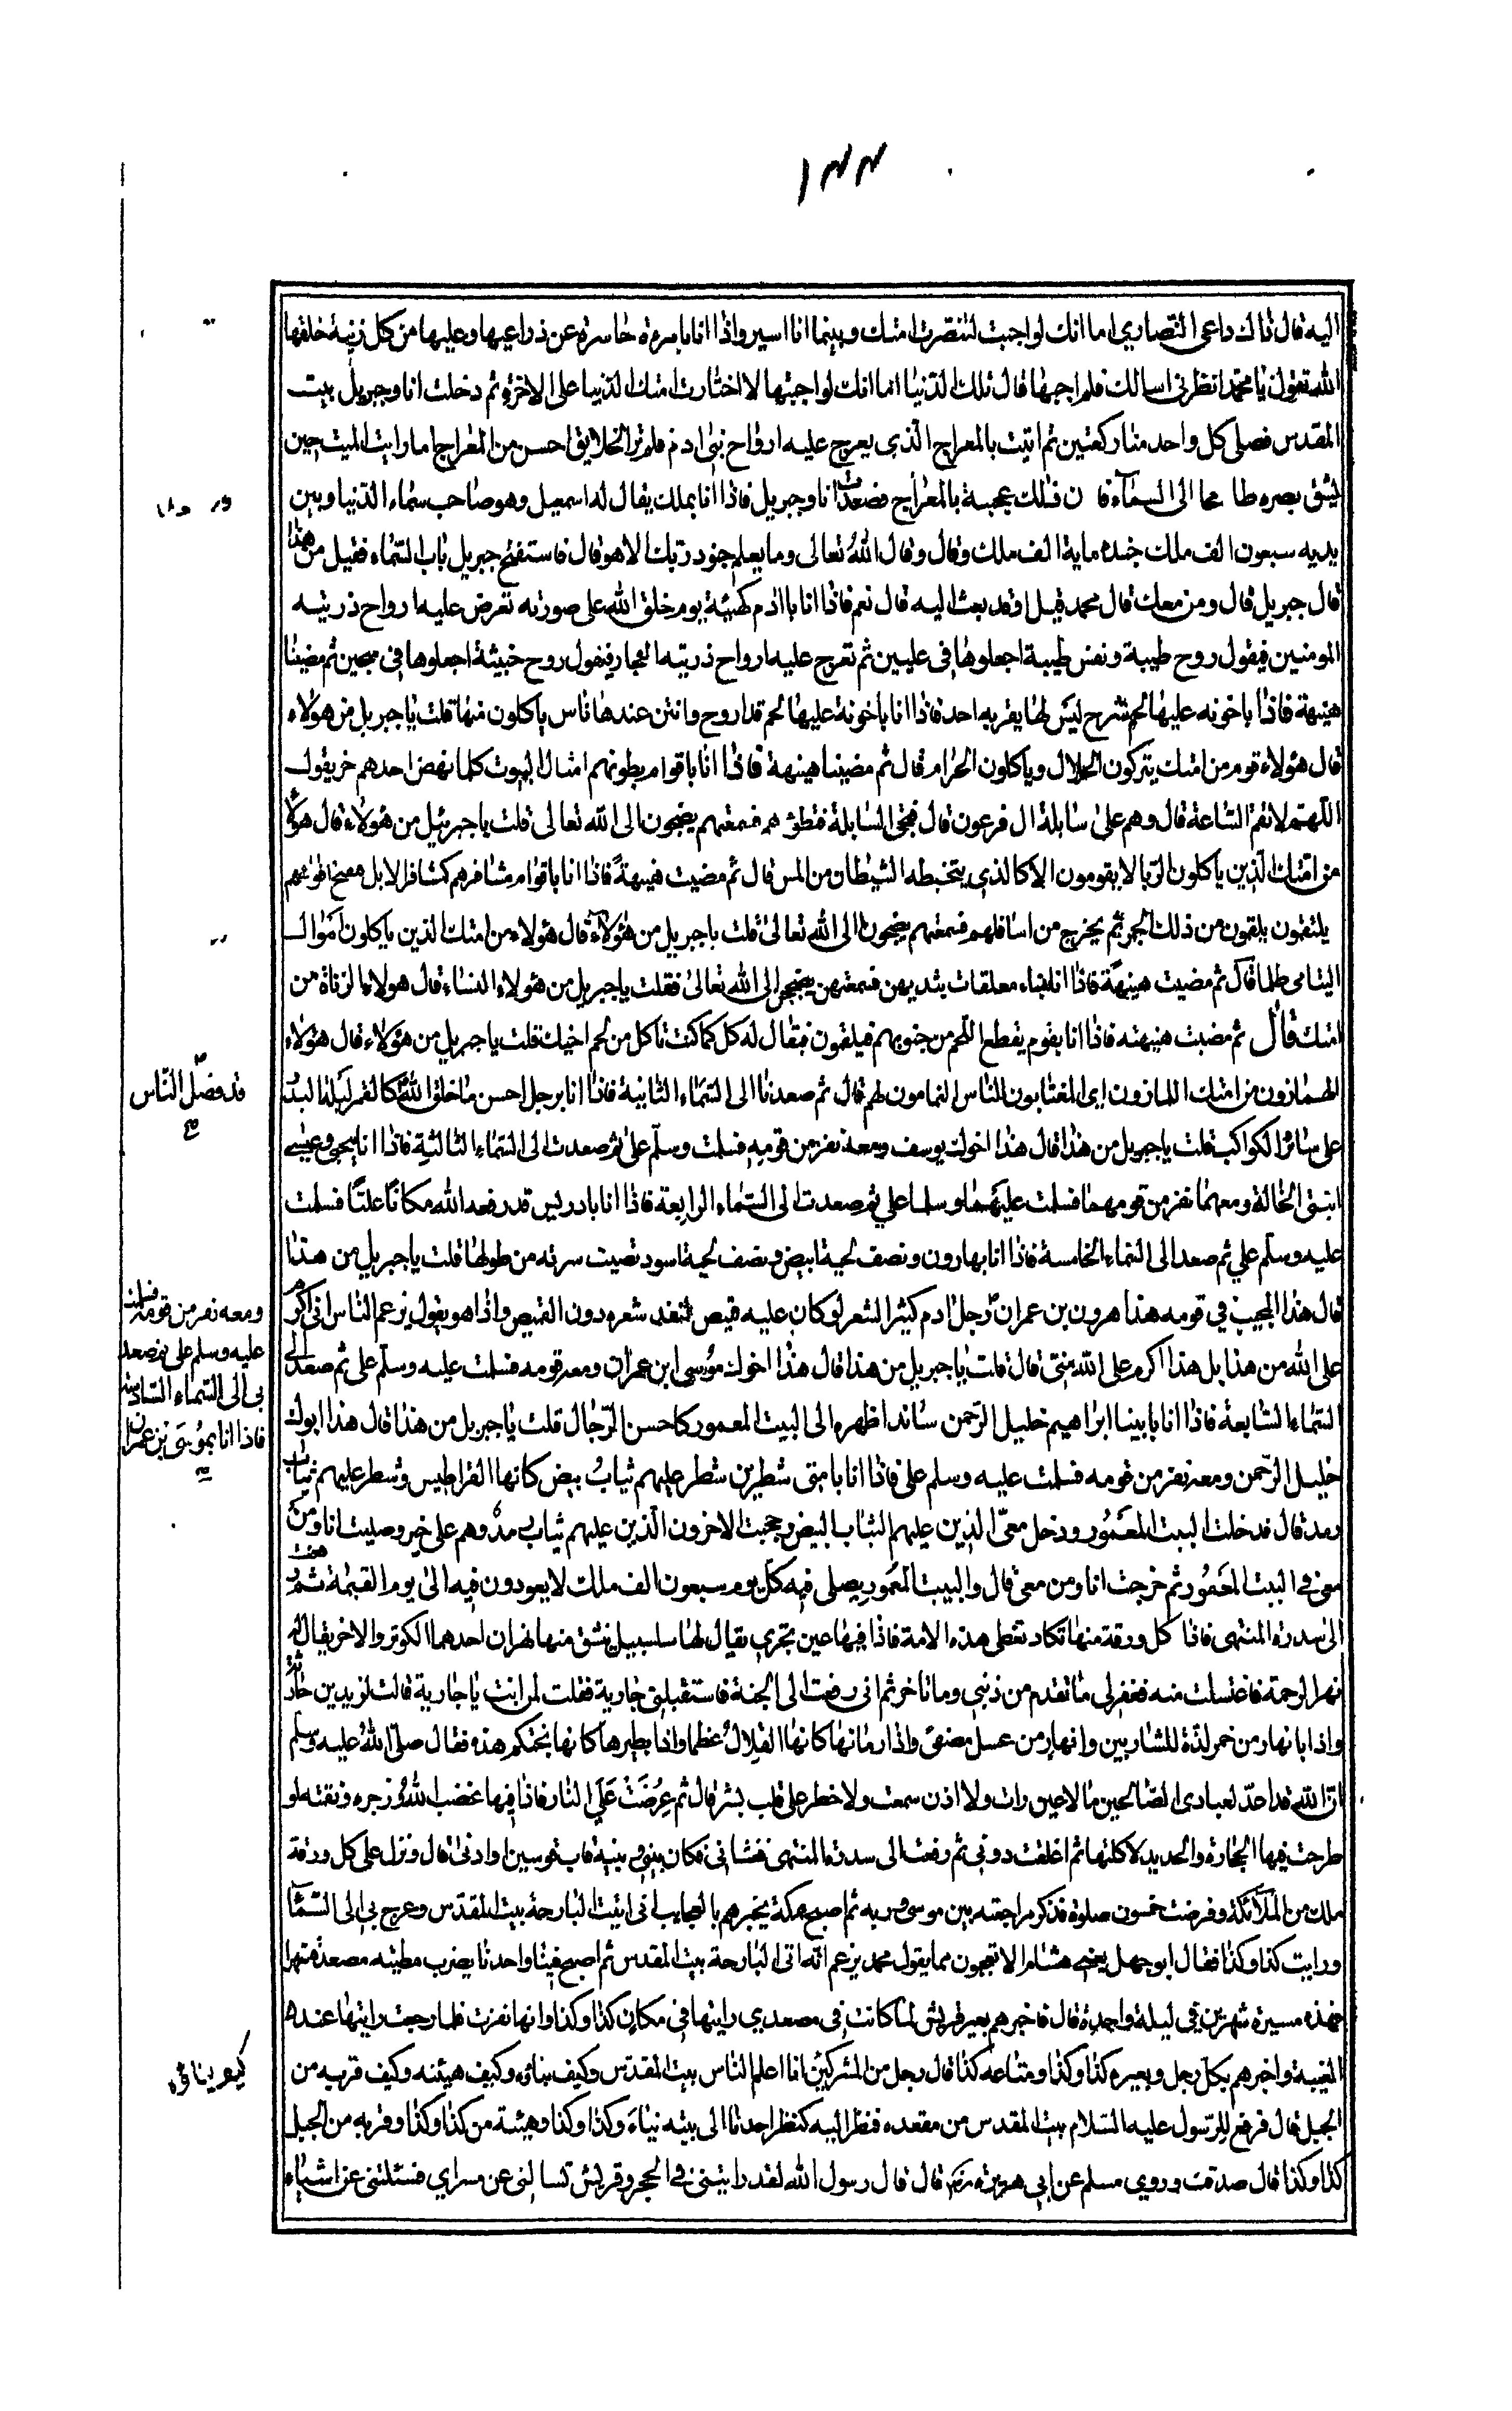 ١٣٣
اليه قال ذاك داعى النصارى اما انك لو اجبت لتنصرت امتك وبينما انا اسير واذا انا بامرءة حاسرة عن ذراعيها وعليها من كل زينة خلقها
الله تقول يا محمد انظرنى اسالك فلم اجبها قال تلك الدنيا اما انك لو اجبتها لاختارت امتك الدنيا على الاخرة ثم دخلت انا وجبريل بيت
المقدس فصلى كل واحد منا ركعتين ثم اتيت بالمعراج الذى يعرج عليه ارواح بنى ادم فلم تر الخلايق احسن من المعراج اما رايت الميت حين
يشق بصره طامحا الى السمآء فان ذلك عجبة بالمعراج فصعدت انا وجبريل فاذا انا بملك يقال له اسمعيل وهو صاحب سماء الدنيا وبين
يديه سبعون الف ملك جنده ماية الف ملك وقال وقال الله تعالى وما يعلم جنود ربك الا هو قال فاستفتح جبريل باب السماء فقيل من هذا
قال جبريل قال ومن معك قال محمد قيل اوقد بعث اليه قال نعم فاذا انا بادم كهيئة يوم خلق الله على صورته تعرض عليه ارواح ذريته
المومنين فيقول روح طيبة ونفس طيبة اجعلوها فى عليين ثم تعرج عليه ارواح ذريته الفجار فيقول روح خبيثة اجعلوها فى سجين ثم مضينا
هنيهة فاذا باخونه عليها لحم شرح ليس لها يقربه احد فاذا انا باخونة عليها لحم قد اروح وانتن عندها ناس ياكلون منها قلت يا جبريل من هولاء
قال هؤلاء قوم من امتك يتركون الحلال وياكلون الحرام قال ثم مضينا هينهة فاذا انا باقوام بطونهم امثال البيوت كلما نهض احدهم خر يقول
اللهم لا تقم الساعة قال وهم على سابلة ال فرعون قال فتجئ السابلة فتطؤهم فسمعتهم يضجون الى الله تعالى قلت يا جبرئيل من هؤلاء قال هؤلاء
من امتك الذين ياكلون الربا لا يقومون الا كالذى يتخبطه الشيطان من المس قال ثم مضيت هنيهة فاذا انا باقوام مشافرهم كمشافر الابل مفتح افواههم
يلتقمون يلقمون من ذلك الجمر ثم يخرج من اسافلهم فسمعتهم يضجون الى الله تعالى قلت يا جبريل من هؤلاء قال هؤلاء من امتك الذين ياكلون اموال
اليتامى ظلما قال ثم مضيت هينهة فاذا انا بنساء معلقات بثديهن فسمعتهن يضججن الى الله تعالى فقلت يا جبريل من هؤلاء النساء قال هولاء الزناة من
امتك قال ثم مضيت هنيهته فاذا انا بقوم يقطع اللحم من جنوبهم فيلقون فيقال له كل كما كنت تاكل من لحم اخيك قلت يا جبريل من هؤلاء قال هؤلاء
الهمازون من امتك اللمازون اى المغتابون الناس النمامون لهم قال ثم صعدنا الى السماء الثانية فاذا انا برجل احسن ما خلق الله كالقمر ليلة البدر
على سائر الكواكب قلت يا جبريل من هذا قال هذا اخوك يوسف ومعه نفر من قومه فسلمت وسلم على ثم صعدت الى السماء الثالثة فاذا انا بيحيى وعيسى
ابنى الخالة ومعهما نفر من قومهما فسلمت عليهما وسلما على ثم صعدت الى السماء الرابعة فاذا انا بادريس قد رفعه الله مكانا عليا فسلمت
عليه وسلم علي ثم صعد الى السماء الخامسة فاذا انا بهارون ونصف لحية ابيض ونصف لحية اسود تصيت سرته من طولها قلت يا جبريل من هذا
قال هذا المجيب في قومه هذا هرون بن عمران رجل ادم كثير الشعر لو كان عليه قميص لنفذ شعره دون القميص واذا هو يقول يزعم الناس انى اكرم
على الله من هذا بل هذا اكرم على الله منى قال قلت يا جبريل من هذا قال هذا اخوك موسى ابن عمران ومعه قومه فسلمت عليه وسلم على ثم صعد الى
السماء السابعة فاذا انا بابينا ابراهيم خليل الرحمن ساندا ظهره الى البيت المعمور كاحسن الرجال قلت يا جبريل من هذا قال هذا ابوك
خليل الرحمن ومعه نفر من قومه فسلمت عليه وسلم على فاذا انا بامتى شطرين شطر عليهم ثياب بيض كانها القراطيس وشطر عليهم ثياب
رمد قال فدخلت البيت المعمور ودخل معى الذين عليهم الثياب البيض وحجبت الاخرون الذين عليهم ثياب رمد وهم على خير وصليت انا ومن
معى فى البيت المعمور ثم خرجت انا ومن معى قال والبيت المعمور يصلى فيه كل يوم سبعون الف ملك لا يعودون فيه الى يوم القيمة ثم رفعت
الى سدرة المنتهى فاذا كل ورقة منها تكاد تغطى هذه الامة فاذا فيها عين تجرى يقال لها سلسبيل ينشق منها نهران احدهما الكوثر والاخر يقال له
نهر الرحمة فاغتسلت منه فغفر لى ما تقدم من ذنبى وما تاخر ثم انى رفعت الى الجنة فاستقبلتنى جارية فقلت لمن انت يا جارية قالت لزيد بن حارثة
واذا بانهار من خمر لذة للشاربين وانهار من عسل مصفى واذا رمانها كانها القلال عظما واذا بطيرها كانها بختكم هذه فقال صلى الله عليه وسلم
ان الله قد اعد لعبادى الصالحين ما لا عين رات ولا اذن سمعت ولا خطر على قلب بشر قال ثم عرضت على النار فاذا فيها غضب الله وزجره ونقمته لو
طرحت فيها الحجارة والحديد لاكلتها ثم اغلقت دونى ثم رفعت الى سدرة المنتهى فغشانى فكان بينى وبينه قاب قوسين او ادنى قال ونزل على كل ورقة
ملك من الملائكة وفرضت خمسون صلوة فذكر مراجعته بين موسى وربه ثم اصبح بمكة يخبرهم بالعجايب انى اتيت البارحة بيت المقدس وعرج بى الى السماء
ورايت كذا وكذا فقال ابو جهل يعنى هشام الا تعجبون مما يقول محمد يزعم انه اتى البارحة بيت المقدس ثم اصبح فينا واحدنا يضرب مطيته مصعدة شهرا
فهذه مسيرة شهرين فى ليلة واحدة قال فاخبرهم بعير قريش لما كانت فى مصعدي رايتها فى مكان كذا وكذا وانها نفرت فلما رجعت رايتها عنده
العقبة واخبرهم بكل رجل وبعيره كذا وكذا ومتاعه كذا قال رجل من المشركين انا اعلم الناس بيت المقدس وكيف بناؤه وكيف هيئته وكيف قربه من
الجبل قال فرفع للرسول عليه السلام بيت المقدس من مقعده فنظر اليه كنظر احدنا الى بيته بناءه وكذا وكذا وهيئة من كذا وكذا وقربه من الجبل
كذا وكذا قال صدقت وروي مسلم عن ابى هريرة قال قال رسول الله لقد رايتنى فى الحجر وقريش تسالنى عن مسراي فسئلتنى عن اشياء
قد فضل الناس
ومعه نفر من قومه فسلمت
عليه وسلم على ثم صعد
بى الى السماء السادسة
فاذا انا بموسى بن عمران